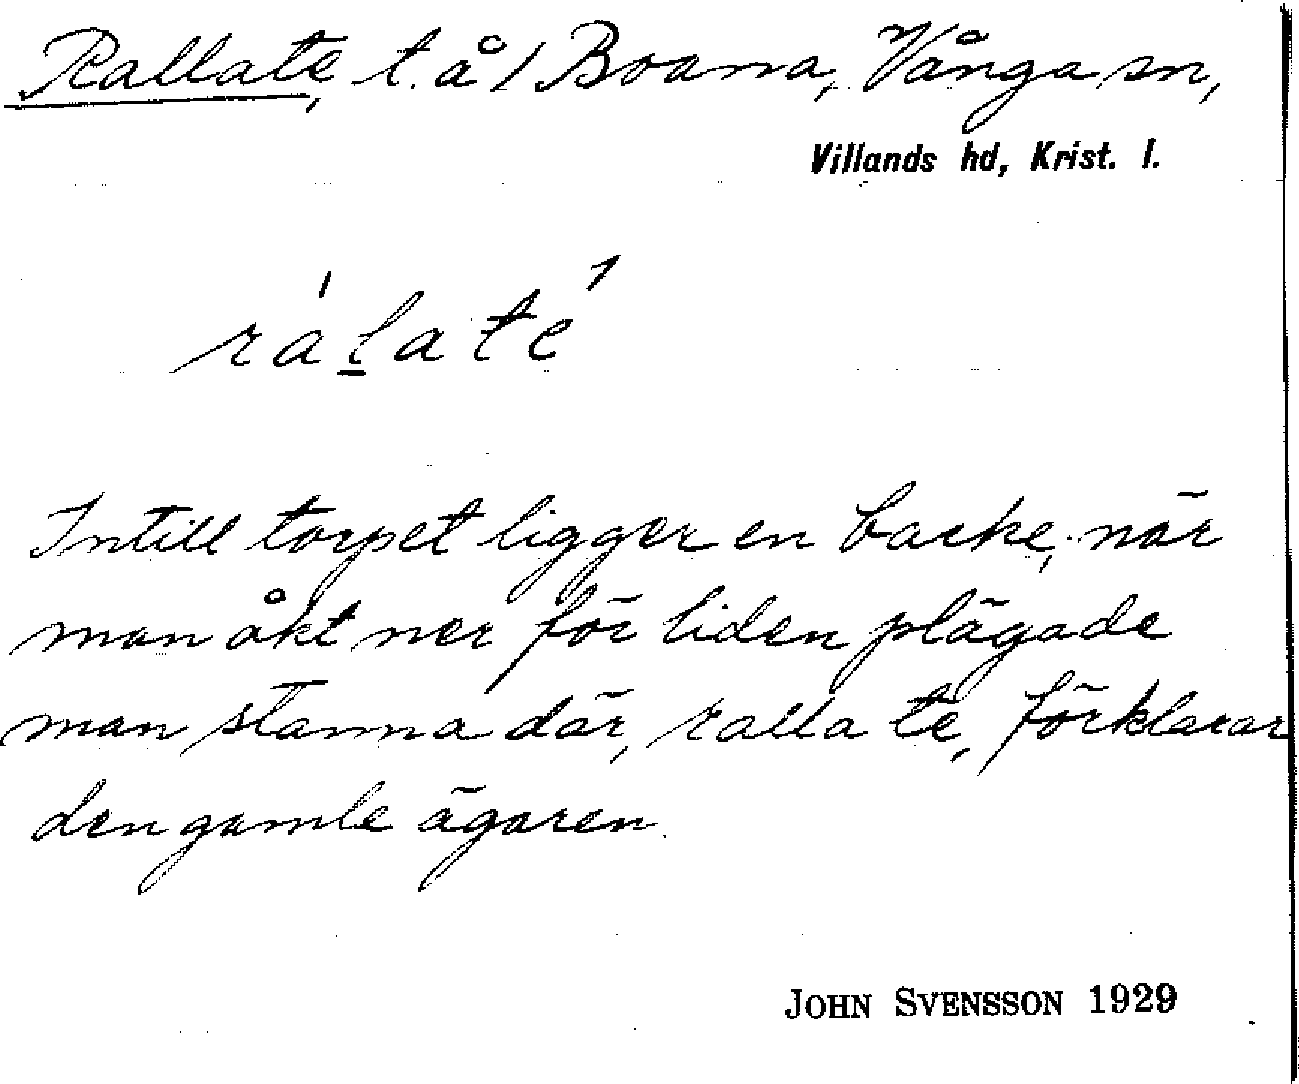 Rallate, t. å 1 Boarna, Vånga sn,
Villands hd, Krist. l.
ralate
Intill torpet ligger en backe, när
man åkt ner för liden plägade
man stanna där, ralla te, förklarar
den gamle ägaren.
JOHN SVENSSON 1929